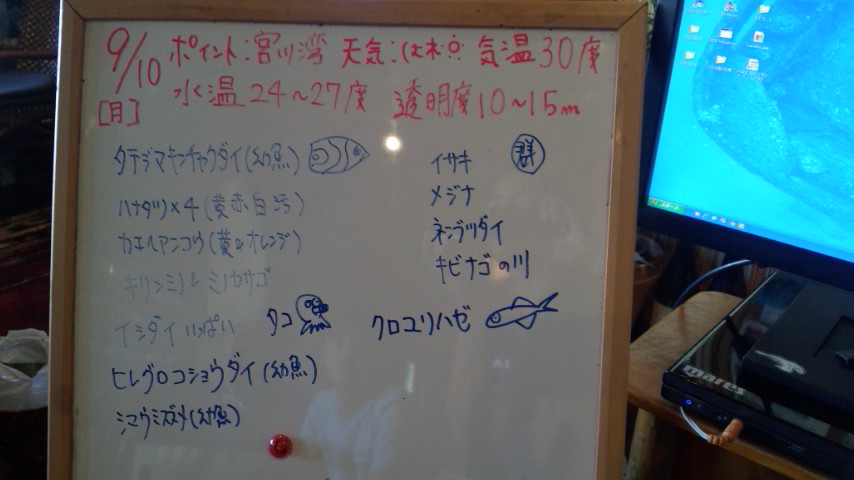 9/10 ポイント:宮川湾 天気: 気温30度
[月] 水温24~27度 透明度10~15m
タテジマキンチャクダイ(幼魚)
ハナダツ×4(黄赤白)
カエルアンコウ(黄&オレンジ)
キリンミノ& ミノカサゴ
イシダイ いっぱい タコ
ヒレグロコショウダイ(幼魚)
(幼魚)
イサキ 群
メジナ
ネンブツダイ
キビナゴの川
クロユリハゼ
mares